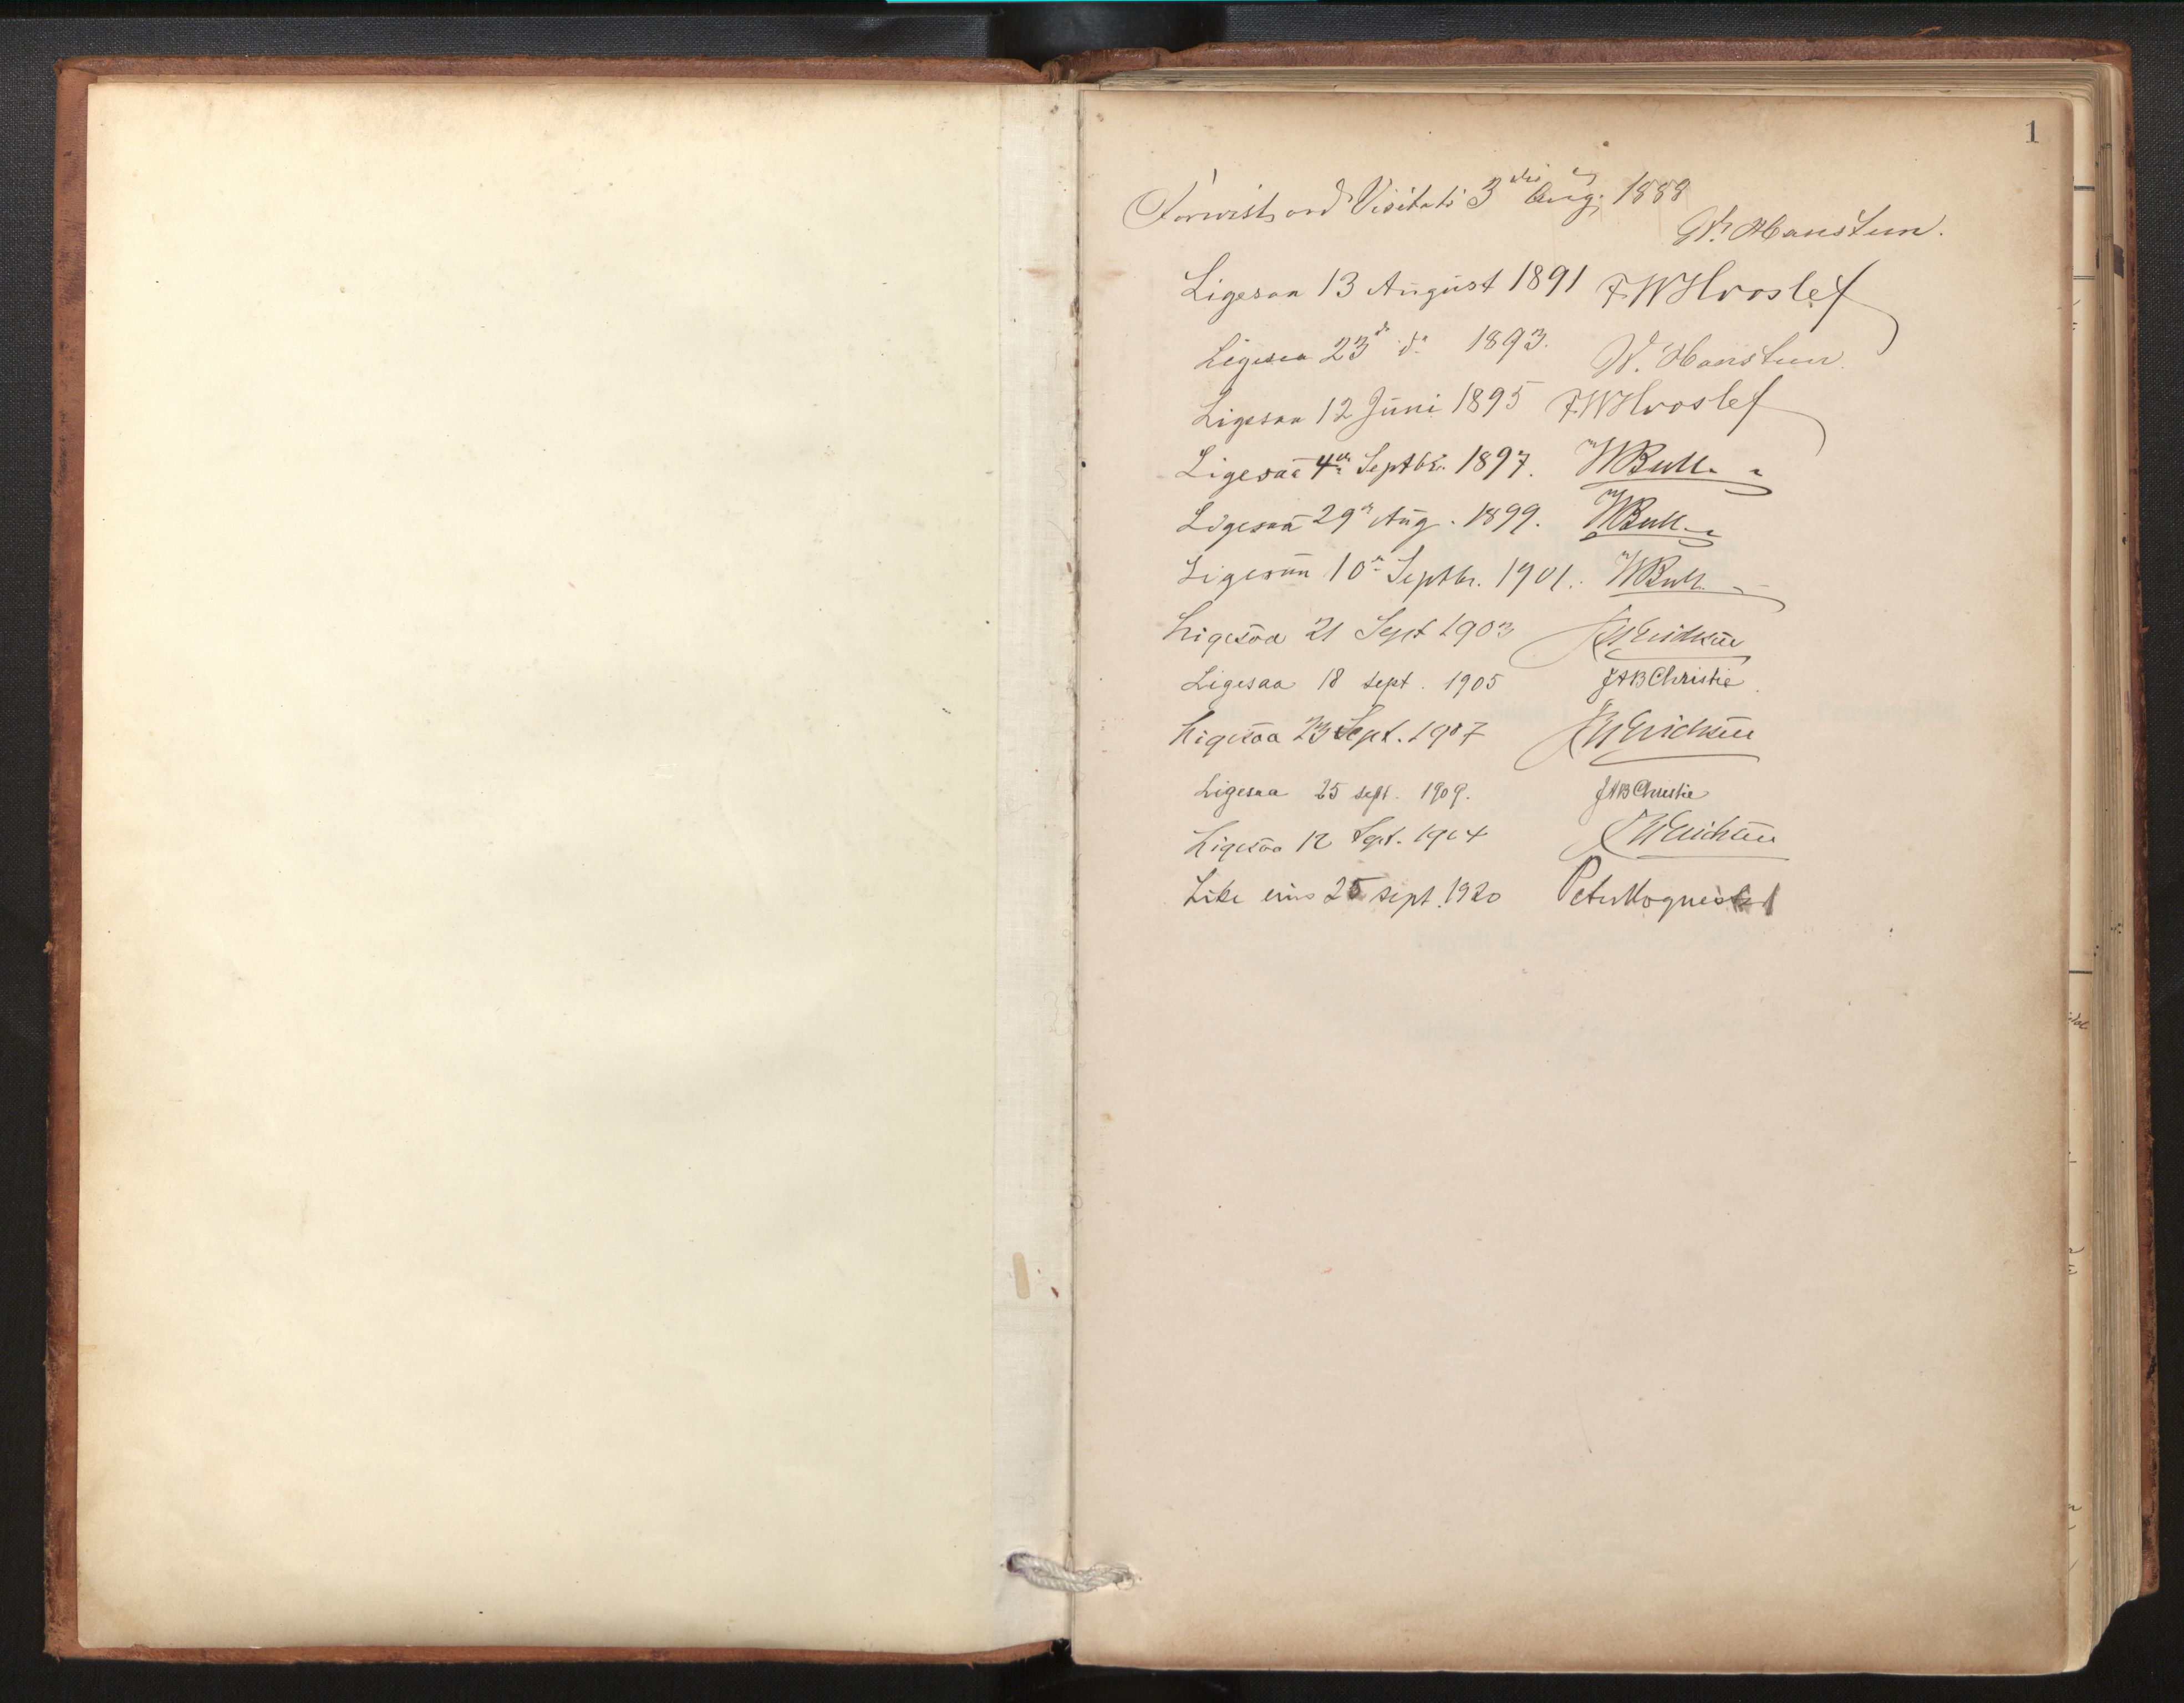 1
Forevist ved Visitats 3die Aug. 1889
Ligesaa 13 August 1891 F W Hvoslef
Ligesaa 23de do 1893.
Ligesaa 12 Juni 1895 F. W Hvoslef
Ligesaa 4de Septbr. 1897. W Bull
Ligesaa 29de Aug. 1899. W Bull
Ligesaa 10de Septbr. 1901. W Bull
Ligesaa 21 Sept 1903 Erichsen
Ligesaa 18 sept. 1905 J A B Christie
Ligesaa 23 Sept. 1907 Erichsen
Ligesaa 25 sept. 1909. J A B Christie
Ligesaa 12 Sept. 1914 Erichsen
Like eins 25 sept. 1920 Peter